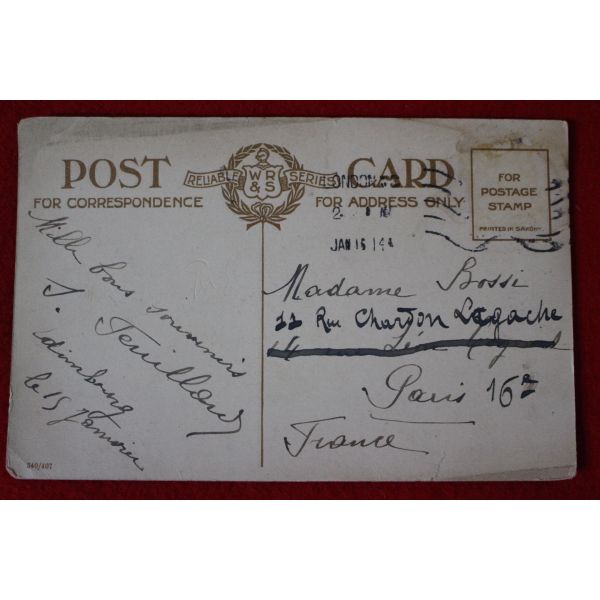 POST CARD
RELIABLE WR&S SERIES
FOR CORRESPONDENCE
FOR ADDRESS ONLY
FOR
POSTAGE
STAMP
PRINTED IN SAXONY
JAN 15 14
Mille bons souvenirs
J. Feuillard
Edimbourg
le 15 Janvier
Madame Bossi
22 Rue Chardon Lagache
Paris 16e
France
340/407